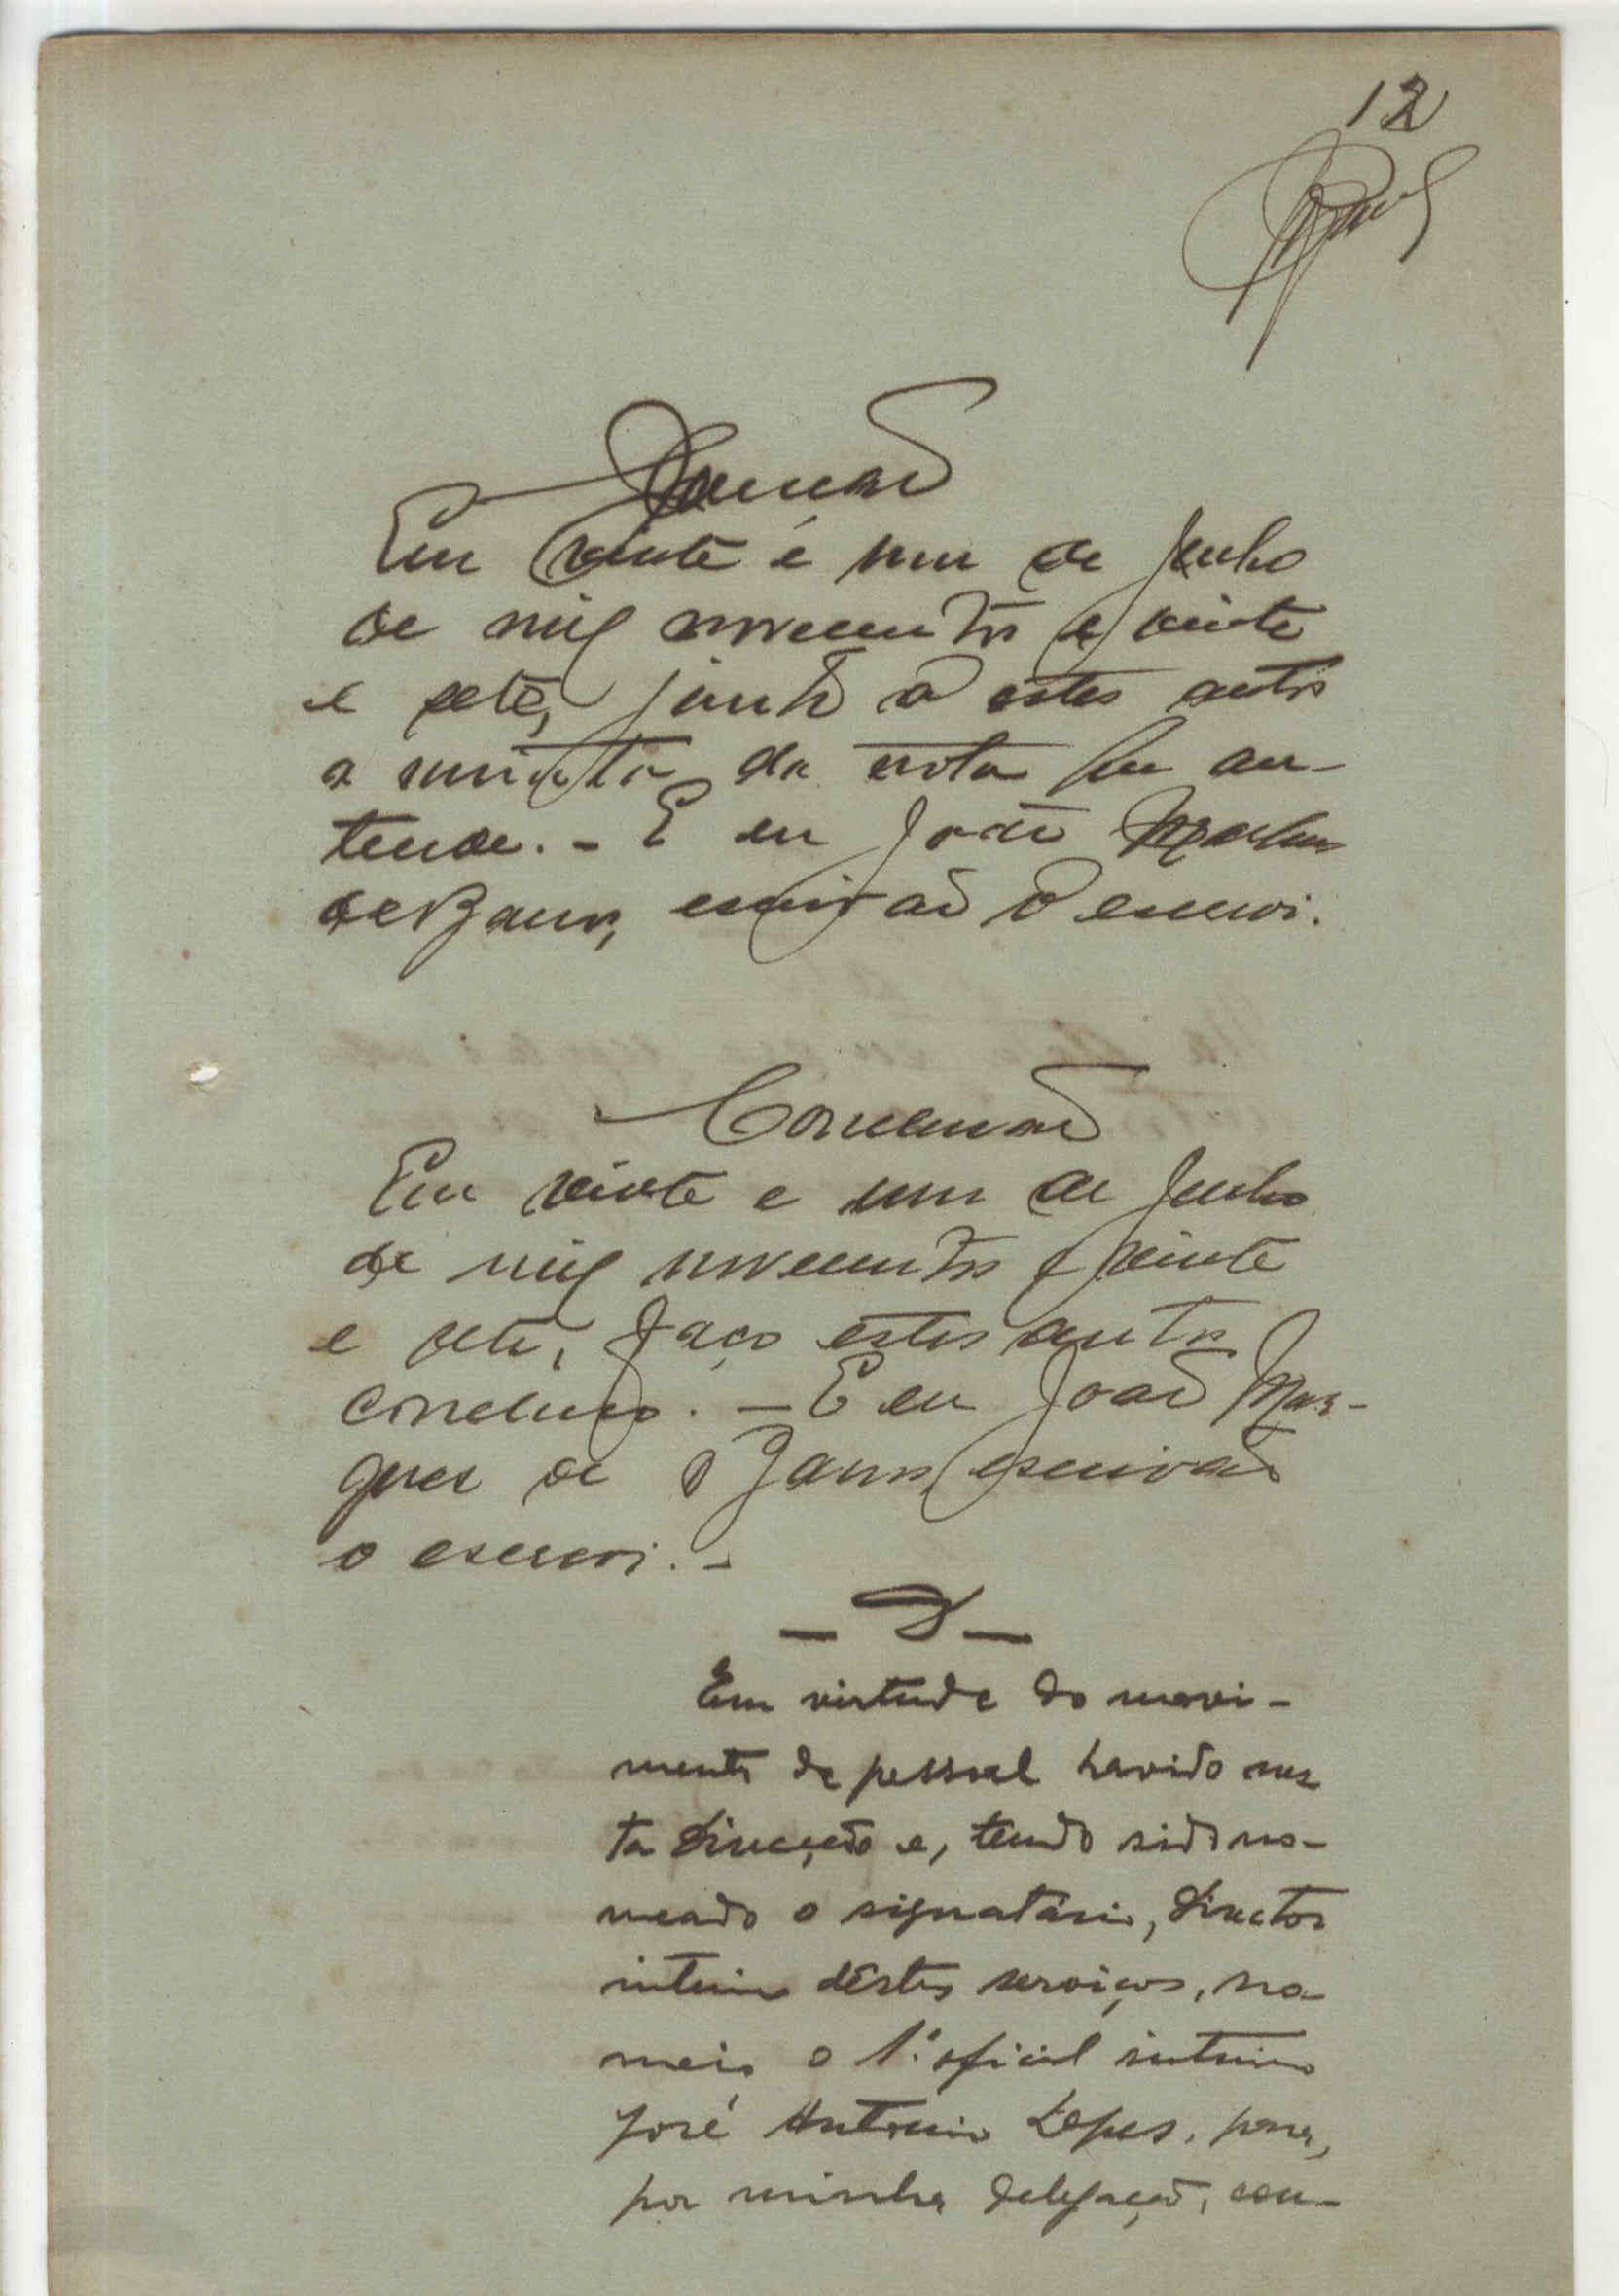 12
Juncção
Em vinte e um de Junho
de mil novecentos e vinte
e sete, junto a estes autos
a minuta da nota que an-
tende. - E eu João Marques
de Barros, escrivão o escrevi.
Conclusão
Em vinte e um de Junho
de mil novecentos e vinte
e sete, faço estes autos
conclusos. - E eu João Mar-
ques de Barros escrivão
o escrevi. -
Em virtude do movi-
mento de pessoal havido nes
ta Direcção e, tendo sido no-
meado o signatário, Director
interino dêstes serviços, no
meio o 1.º oficial interino
José Antonio Lopes, para,
por minha delegação, con-